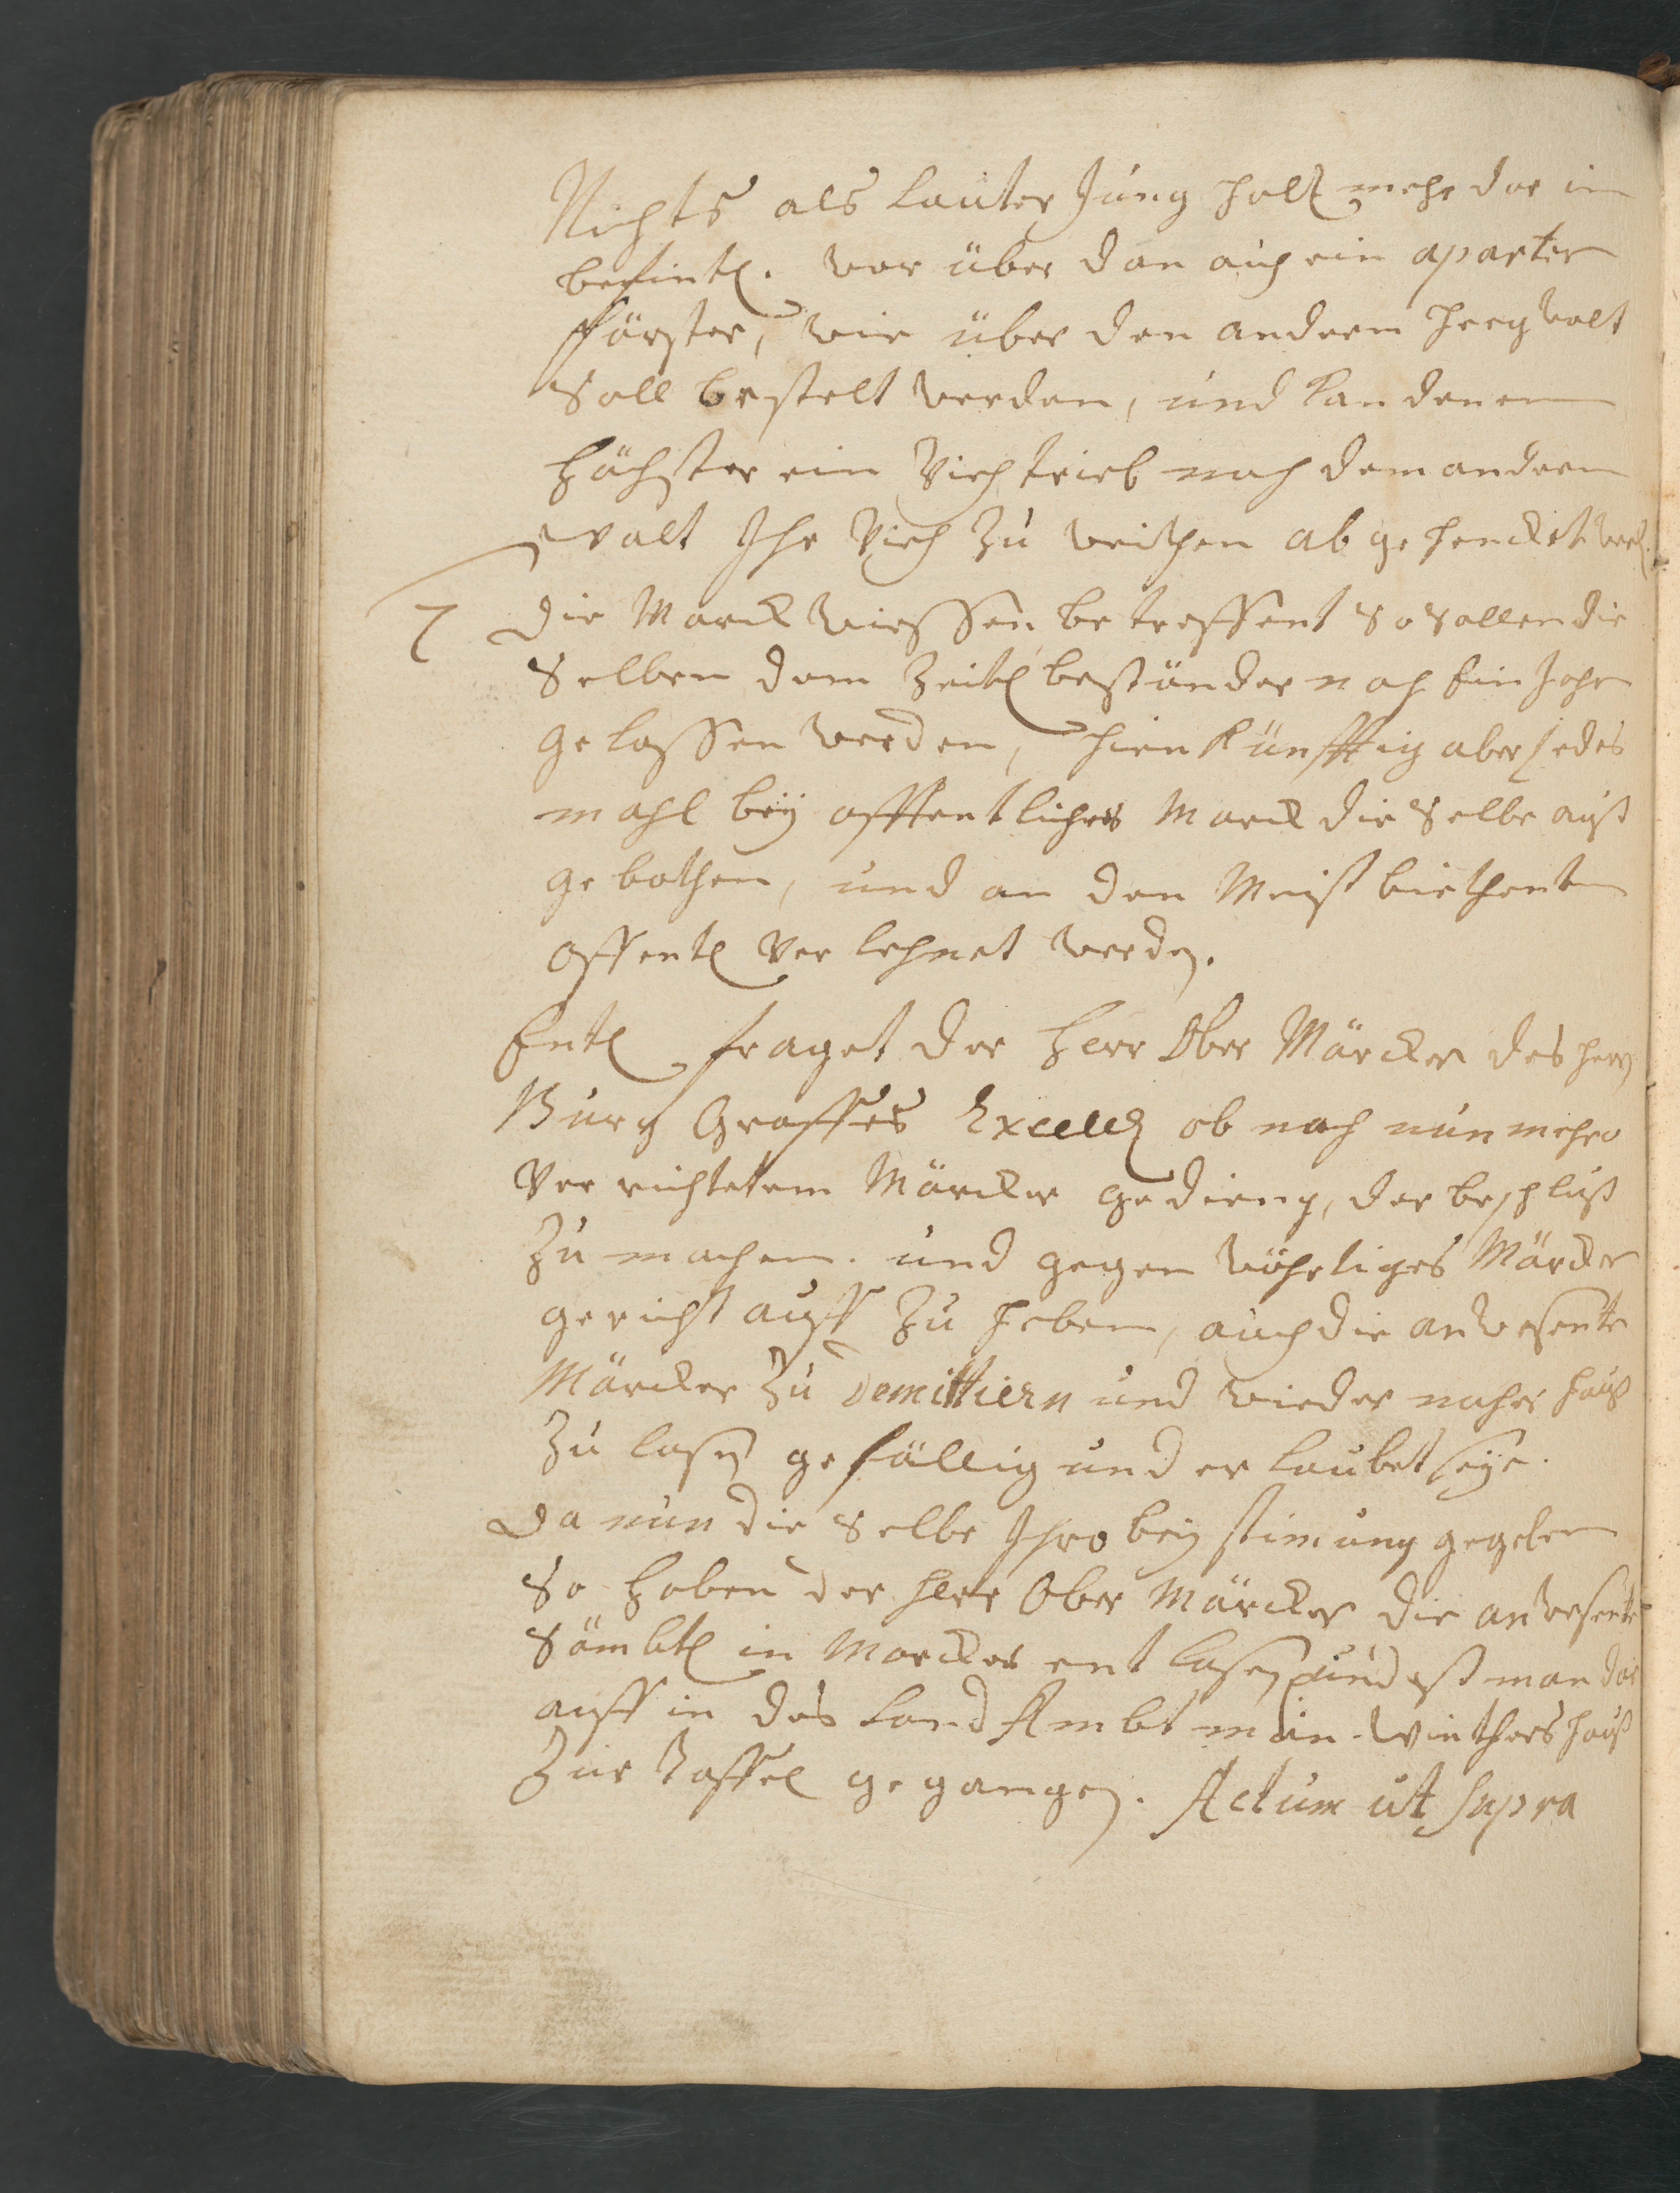 Nichts als lauter Jung holtz mehr dar in
befintl. wor über dan auch ein aparter
fförster, wie über den andern Heegwalt
Soll bestelt werden, und kan denen
Höchster ein Viehtrieb nach dem andern
walt Ihr Vieh zu weithen ab ge hencket werd.
7 Die Marckwiessen betreffent so sollen die
Selben dem Zeitl beständer noch Ein Johr
gelassen werden, hien Künfftig aber jedes
mahl beÿ offentliches Marck die Selbe auß
gebothen, und an den Meist biethenten
offentl verlehnet werden.
Entl fraget der Herr Ober Märcker des Herrn
Burg Graffes Excell ob nach nun mehro
Ver richtetem Märcker gedieng, der beschluß
zu machen. und gegen wöhrtiges Märcker
gericht auff zu heben, auch die anwesente
Märcker zu Demittiern und wieder naher hauß
zu lasen gefällig und er laubet seÿe.
Da nun die Selbe Ihro beÿ stimung gegeben
So haben der Herr Ober Märcker die anwesente
Sämbtl in Märcker ent lasen und ist man dar
auff in des Land Ambt man Winthers hauß
Zur Taffel gegangen. Actum ut supra